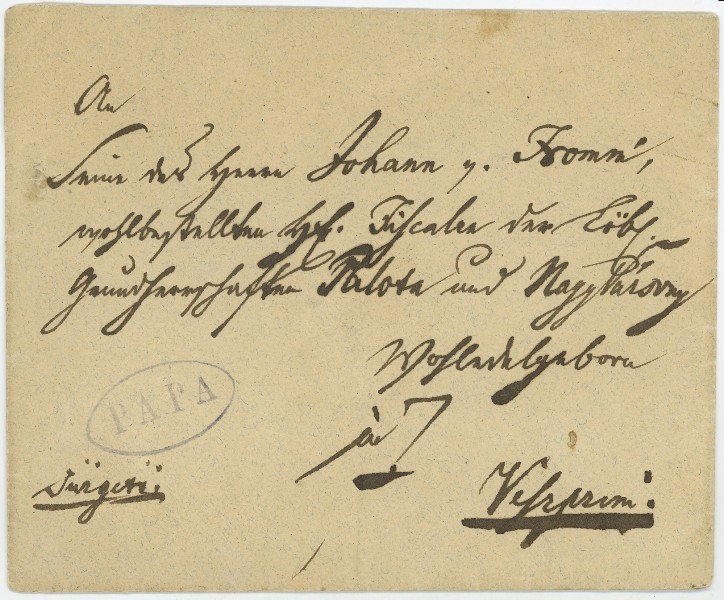 An
Seine des Herrn Johann v. Fromm,
wohlbestellten Hf. Fiscalen der Löbl.
Grundherrschaften Palota und Nagy
Wohledelgeborn
à
PAPA
Sürgető.
Veszprim.